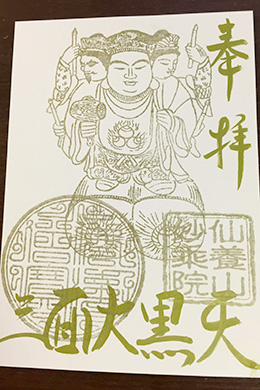 奉拝
三面大黒天
仙養山
妙乘院